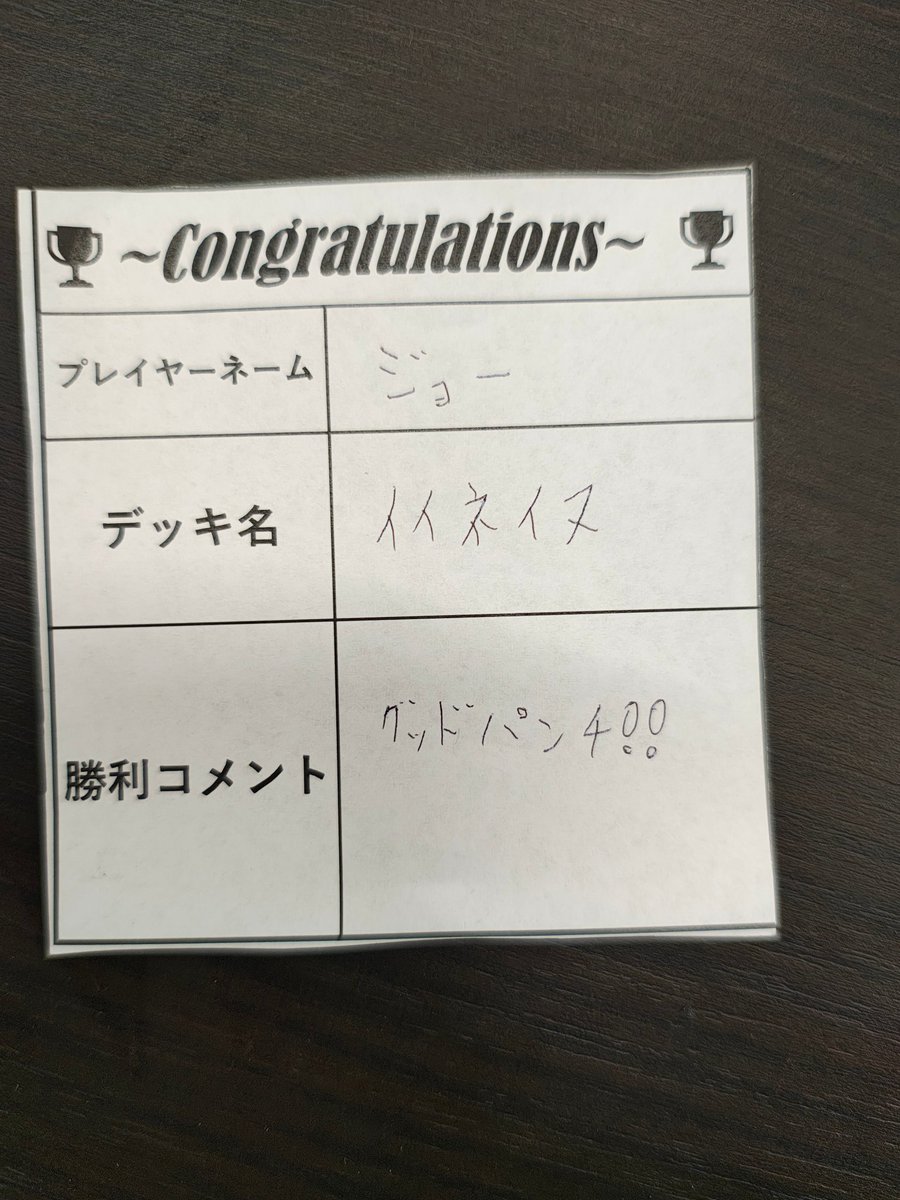 ~Congratulations~
プレイヤーネーム
ジョー
デッキ名
イイネイヌ
勝利コメント
グッドパンチ!!